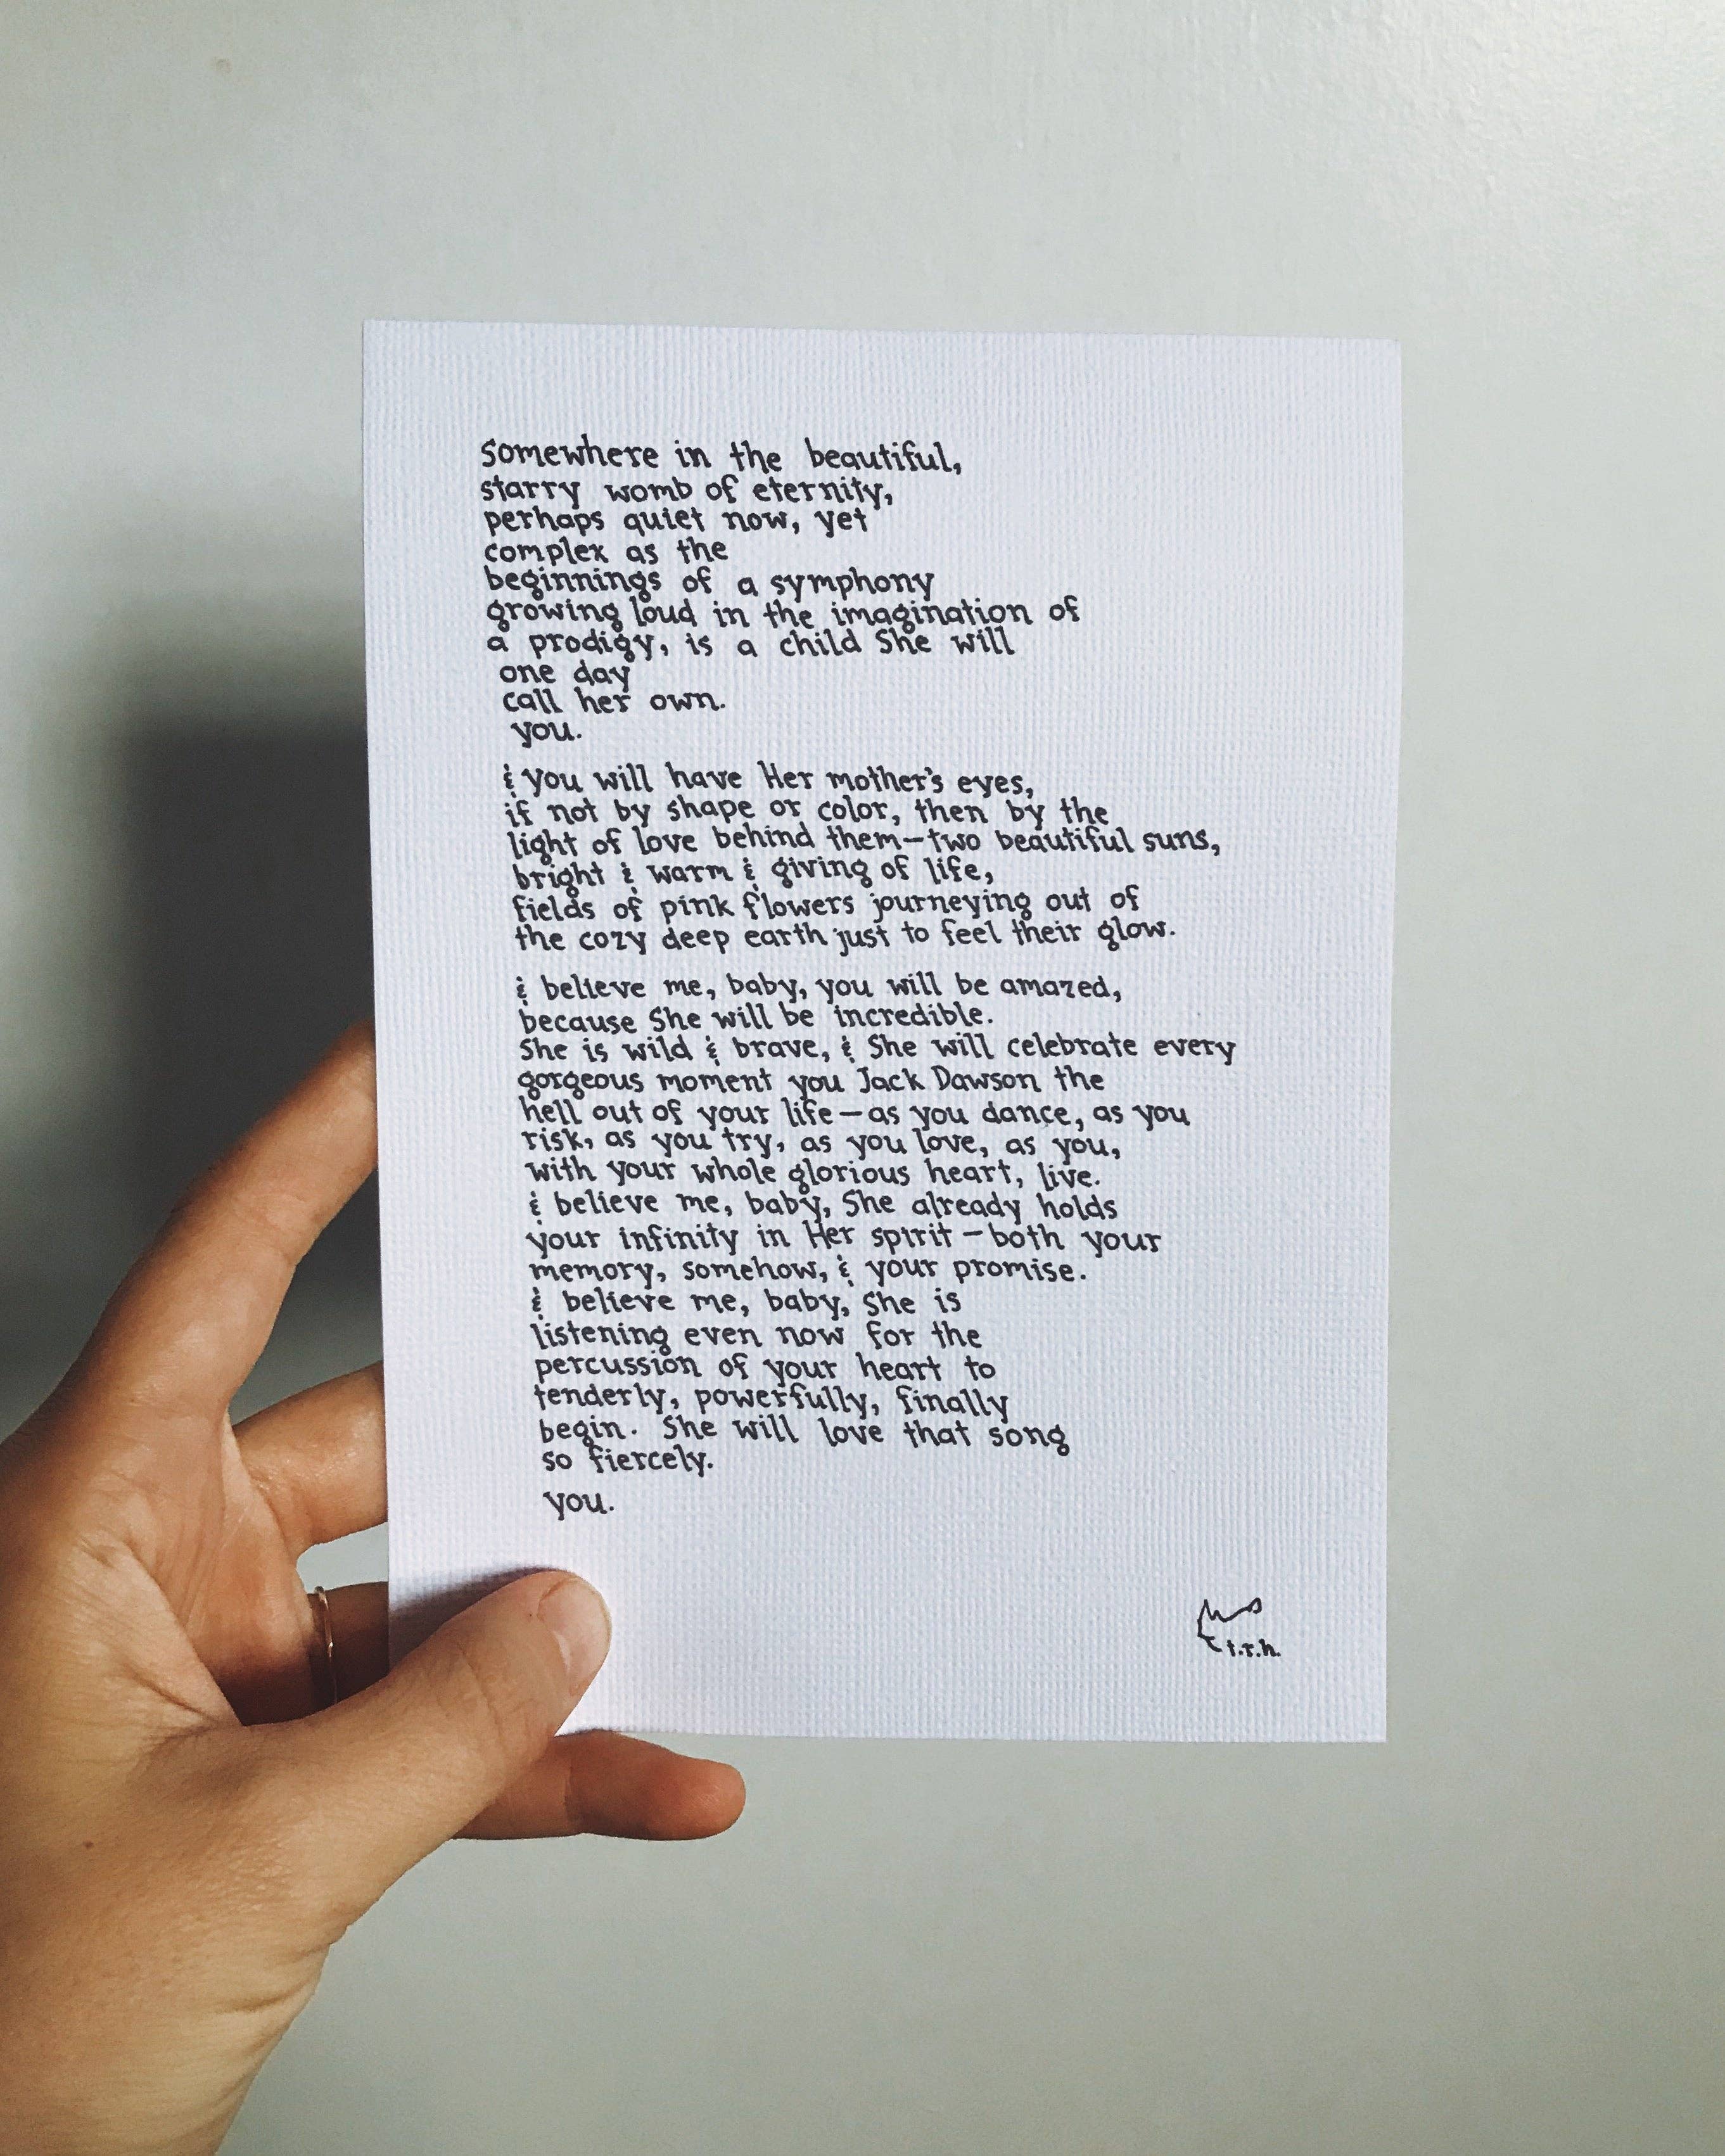 somewhere in the beautiful,
starry womb of eternity,
perhaps quiet now, yet
complex as the
beginnings of a symphony
growing loud in the imagination of
a prodigy, is a child She will
one day
call her own.
you.
& you will have Her mother's eyes,
if not by shape or color, then by the
light of love behind them—two beautiful suns,
bright & warm & giving of life,
fields of pink flowers journeying out of
the cozy deep earth just to feel their glow.
& believe me, baby, you will be amazed,
because She will be incredible.
She is wild & brave, & She will celebrate every
gorgeous moment you Jack Dawson the
hell out of your life—as you dance, as you
risk, as you try, as you love, as you,
with your whole glorious heart, live.
& believe me, baby, She already holds
your infinity in Her spirit—both your
memory, somehow, & your promise.
& believe me, baby, She is
listening even now for the
percussion of your heart to
tenderly, powerfully, finally
begin. She will love that song
so fiercely.
you.
t.r.h.